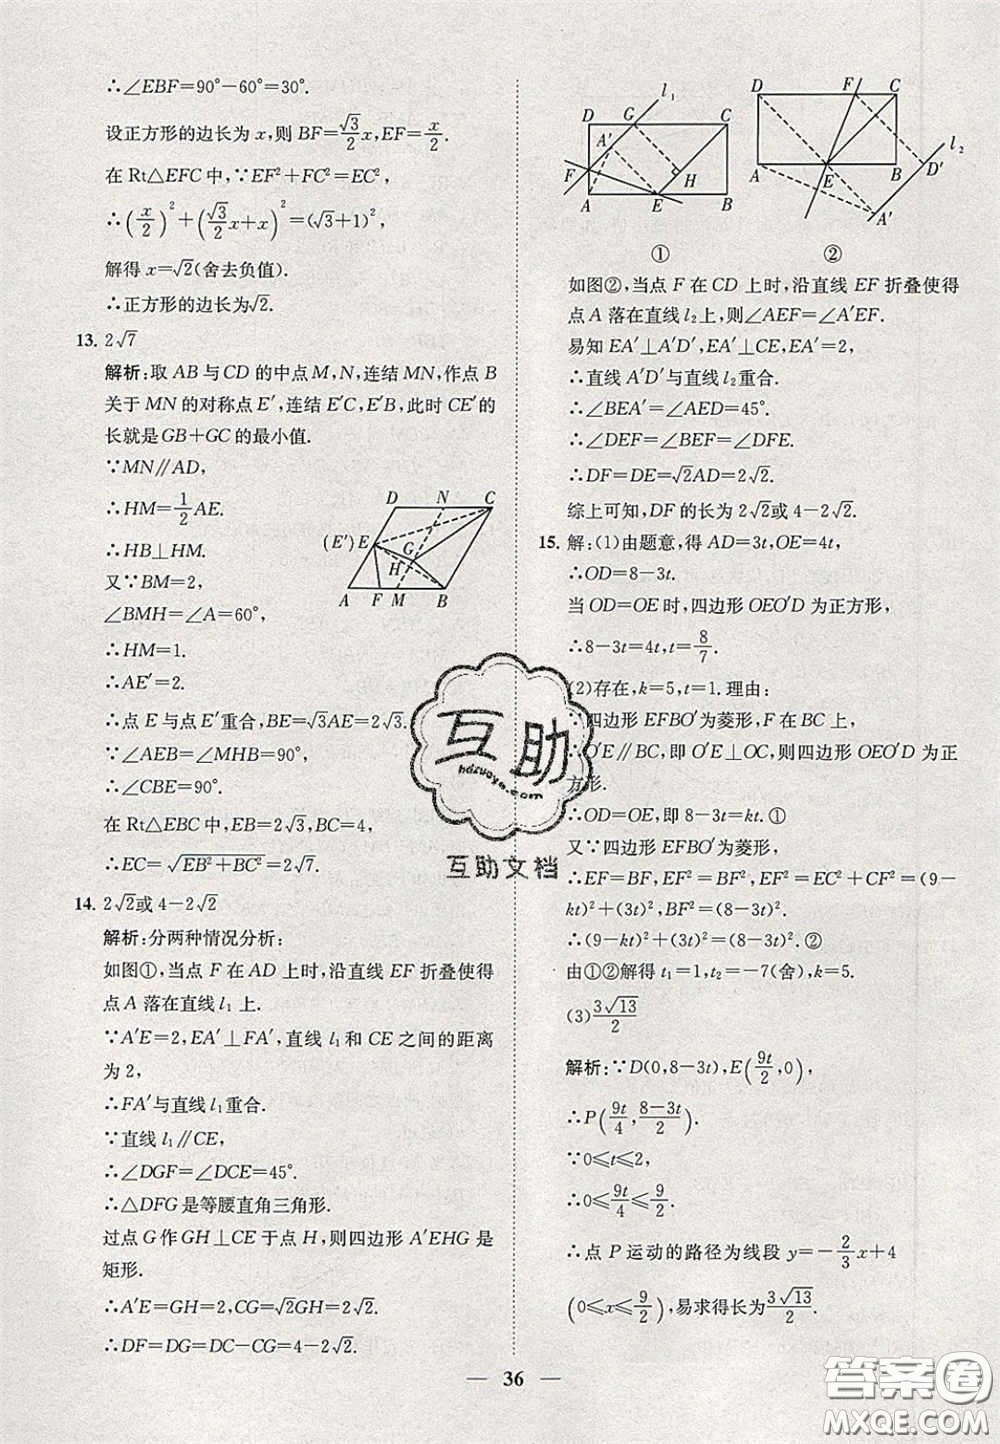 ∴∠EBF=90°-60°=30°.
设正方形的边长为x,则BF=√3/2 x,EF=x/2.
在Rt△EFC中,∵EF²+FC²=EC²,
∴(x/2)²+(√3/2 x+x)²=(√3+1)²,
解得x=√2(舍去负值).
∴正方形的边长为√2.
13. 2√7
解析:取AB与CD的中点M,N,连结MN,作点B
关于MN的对称点E′,连结E′C,E′B,此时CE′的
长就是GB+GC的最小值.
∵MN∥AD,
∴HM=1/2 AE.
∴HB⊥HM.
又∵BM=2,
∠BMH=∠A=60°,
∴HM=1.
∴AE′=2.
D N C
(E′)E G
H
A F M B
∴点E与点E′重合,BE=√3AE=2√3.
∵∠AEB=∠MHB=90°,
∴∠CBE=90°.
在Rt△EBC中,EB=2√3,BC=4,
∴EC=√EB²+BC²=2√7.
14. 2√2或4-2√2
解析:分两种情况分析:
如图①,当点F在AD上时,沿直线EF折叠使得
点A落在直线l₁上.
∵A′E=2,EA′⊥FA′,直线l₁和CE之间的距离
为2,
∴FA′与直线l₁重合.
∵直线l₁∥CE,
∴∠DGF=∠DCE=45°.
∴△DFG是等腰直角三角形.
过点G作GH⊥CE于点H,则四边形A′EHG是
矩形.
∴A′E=GH=2,CG=√2GH=2√2.
∴DF=DG=DC-CG=4-2√2.
l₁
D G C
A′
F
H
A E B
①
D F C
l₂
A E B D′
A′
②
如图②,当点F在CD上时,沿直线EF折叠使得
点A落在直线l₂上,则∠AEF=∠A′EF.
易知EA′⊥A′D′,EA′⊥CE,EA′=2,
∴直线A′D′与直线l₂重合.
∴∠BEA′=∠AED=45°.
∴∠DEF=∠BEF=∠DFE.
∴DF=DE=√2AD=2√2.
综上可知,DF的长为2√2或4-2√2.
15. 解:(1)由题意,得AD=3t,OE=4t,
∴OD=8-3t.
当OD=OE时,四边形OEO′D为正方形,
∴8-3t=4t,t=8/7.
(2)存在,k=5,t=1.理由:
∵四边形EFBO′为菱形,F在BC上,
∴O′E∥BC,即O′E⊥OC,则四边形OEO′D为正
方形.
∴OD=OE,即8-3t=kt. ①
又∵四边形EFBO′为菱形,
∴EF=BF,EF²=BF²,EF²=EC²+CF²=(9-
kt)²+(3t)²,BF²=(8-3t)².
∴(9-kt)²+(3t)²=(8-3t)². ②
由①②解得t₁=1,t₂=-7(舍),k=5.
(3) 3√13/2
解析:∵D(0,8-3t),E(9t/2,0),
∴P(9t/4,(8-3t)/2).
∵0≤t≤2,
∴0≤9t/4≤9/2.
∴点P运动的路径为线段y=-2/3 x+4
(0≤x≤9/2),易求得长为3√13/2.
互助
hdzuoye.com
互助文档
36
答案圈
MXQE.COM